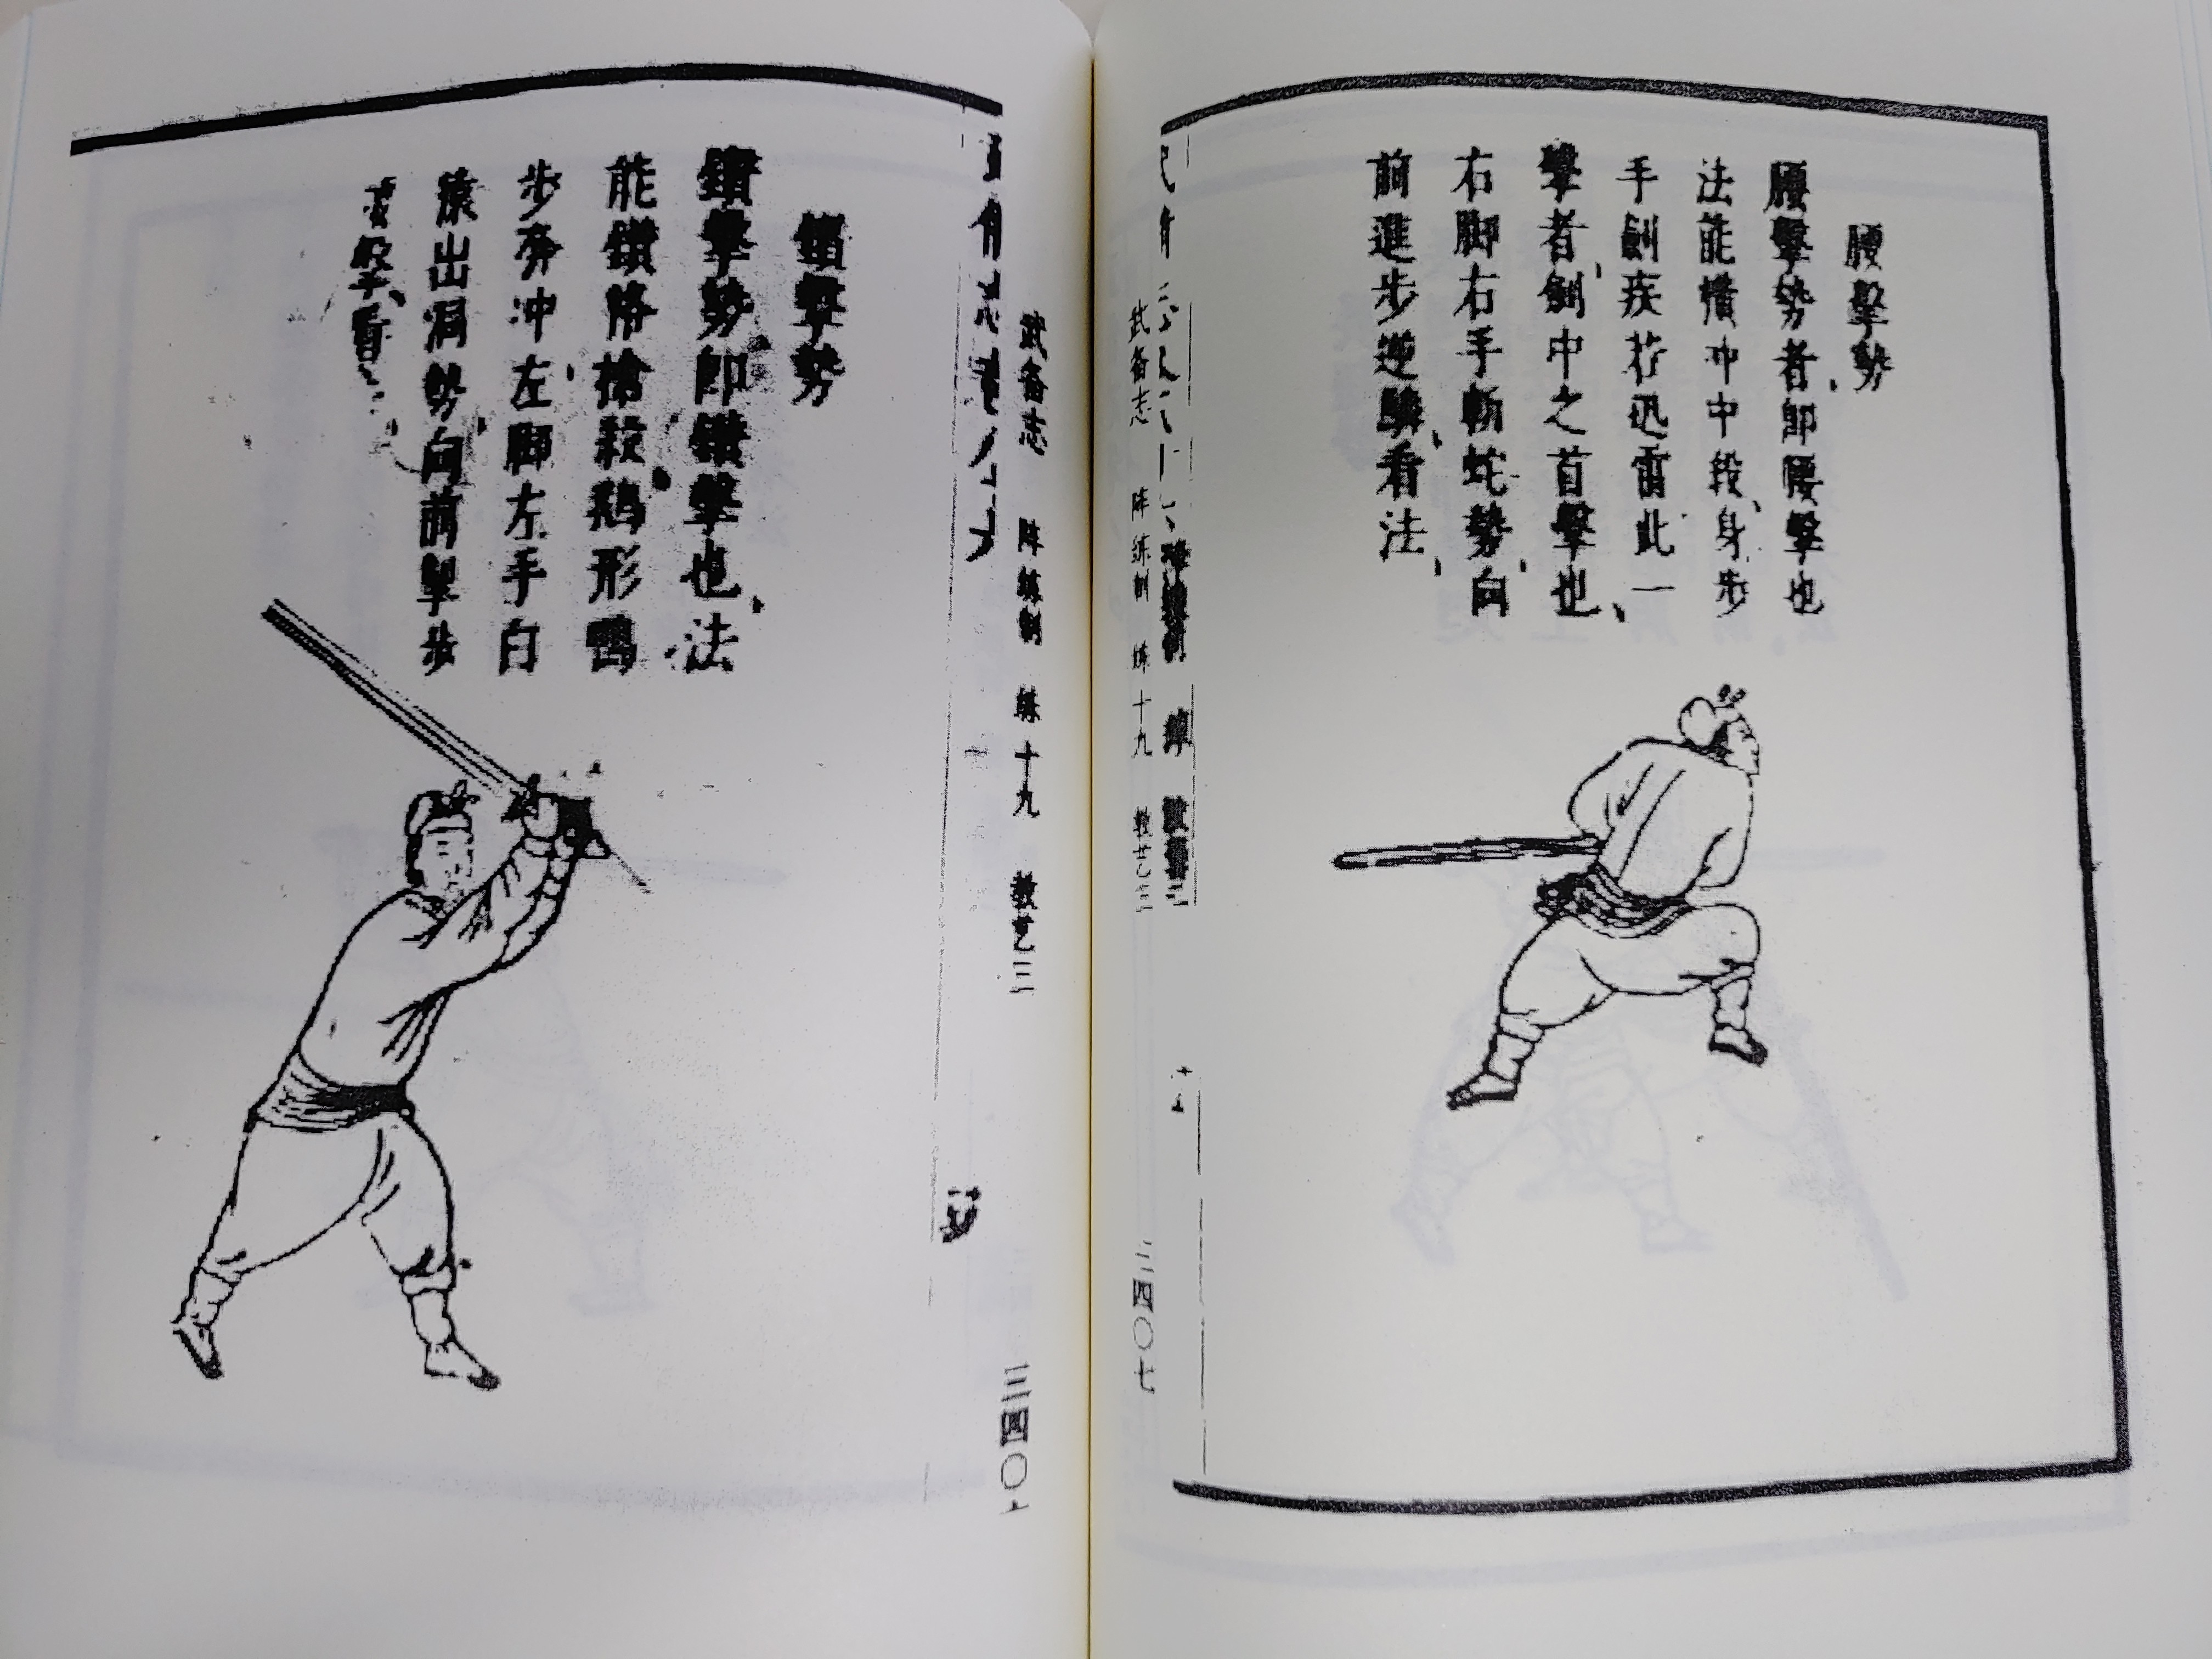 腰擊勢
腰擊勢者即腰擊也
法能橫冲中段身步
手劍疾若迅雷此一
擊者劍中之首擊也
右脚右手斬蛇勢向
前進步逆鱗看法
武备志 阵练制 练十九 教艺三 三四〇七
武备志 阵练制 练十九 教艺三 三四〇
鑽擊勢
鑽擊勢即鑽擊也法
能鑽格搶殺鵝形鴨
步奔冲左脚左手白
猿出洞勢向前掣步
擊看